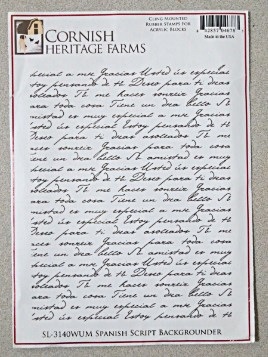 CORNISH
HERITAGE FARMS
CLING MOUNTED
RUBBER STAMPS FOR
ACRYLIC BLOCKS
Made in the USA
special a mi Gracias Usted es especial
toy pensando de ti Deseo para ti dias
soleados Tu me haces sonreir Gracias
ara toda cosa Tiene un dea bello Su
amistad es muy especial a mi Gracias
sted es especial Estoy pensando de ti
Deseo para ti dias soleados Tu me
haces sonreir Gracias para toda cosa
iene un dea bello Su amistad es muy
special a mi Gracias Usted es especial
toy pensando de ti Deseo para ti dias
soleados Tu me haces sonreir Gracias
ara toda cosa Tiene un dea bello Su
amistad es muy especial a mi Gracias
sted es especial Estoy pensando de ti
Deseo para ti dias soleados Tu me
haces sonreir Gracias para toda cosa
iene un dea bello Su amistad es muy
special a mi Gracias Usted es especial
toy pensando de ti Deseo para ti dias
soleados Tu me haces sonreir Gracias
ara toda cosa Tiene un dea bello Su
amistad es muy especial a mi Gracias
sted es especial Estoy pensando de ti
SL-3140WUM SPANISH SCRIPT BACKGROUNDER